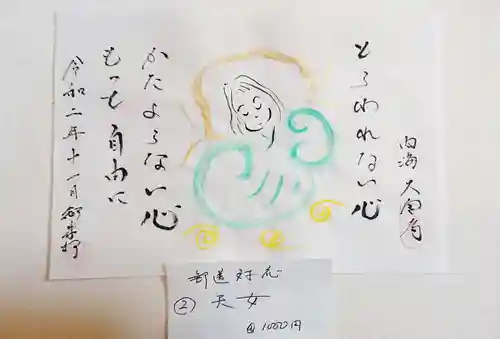 内海 大金寿
とらわれない心
かたよらない心
もっと自由に
令和二年十一月 御来拝
郵送対応
② 天女
@1000円